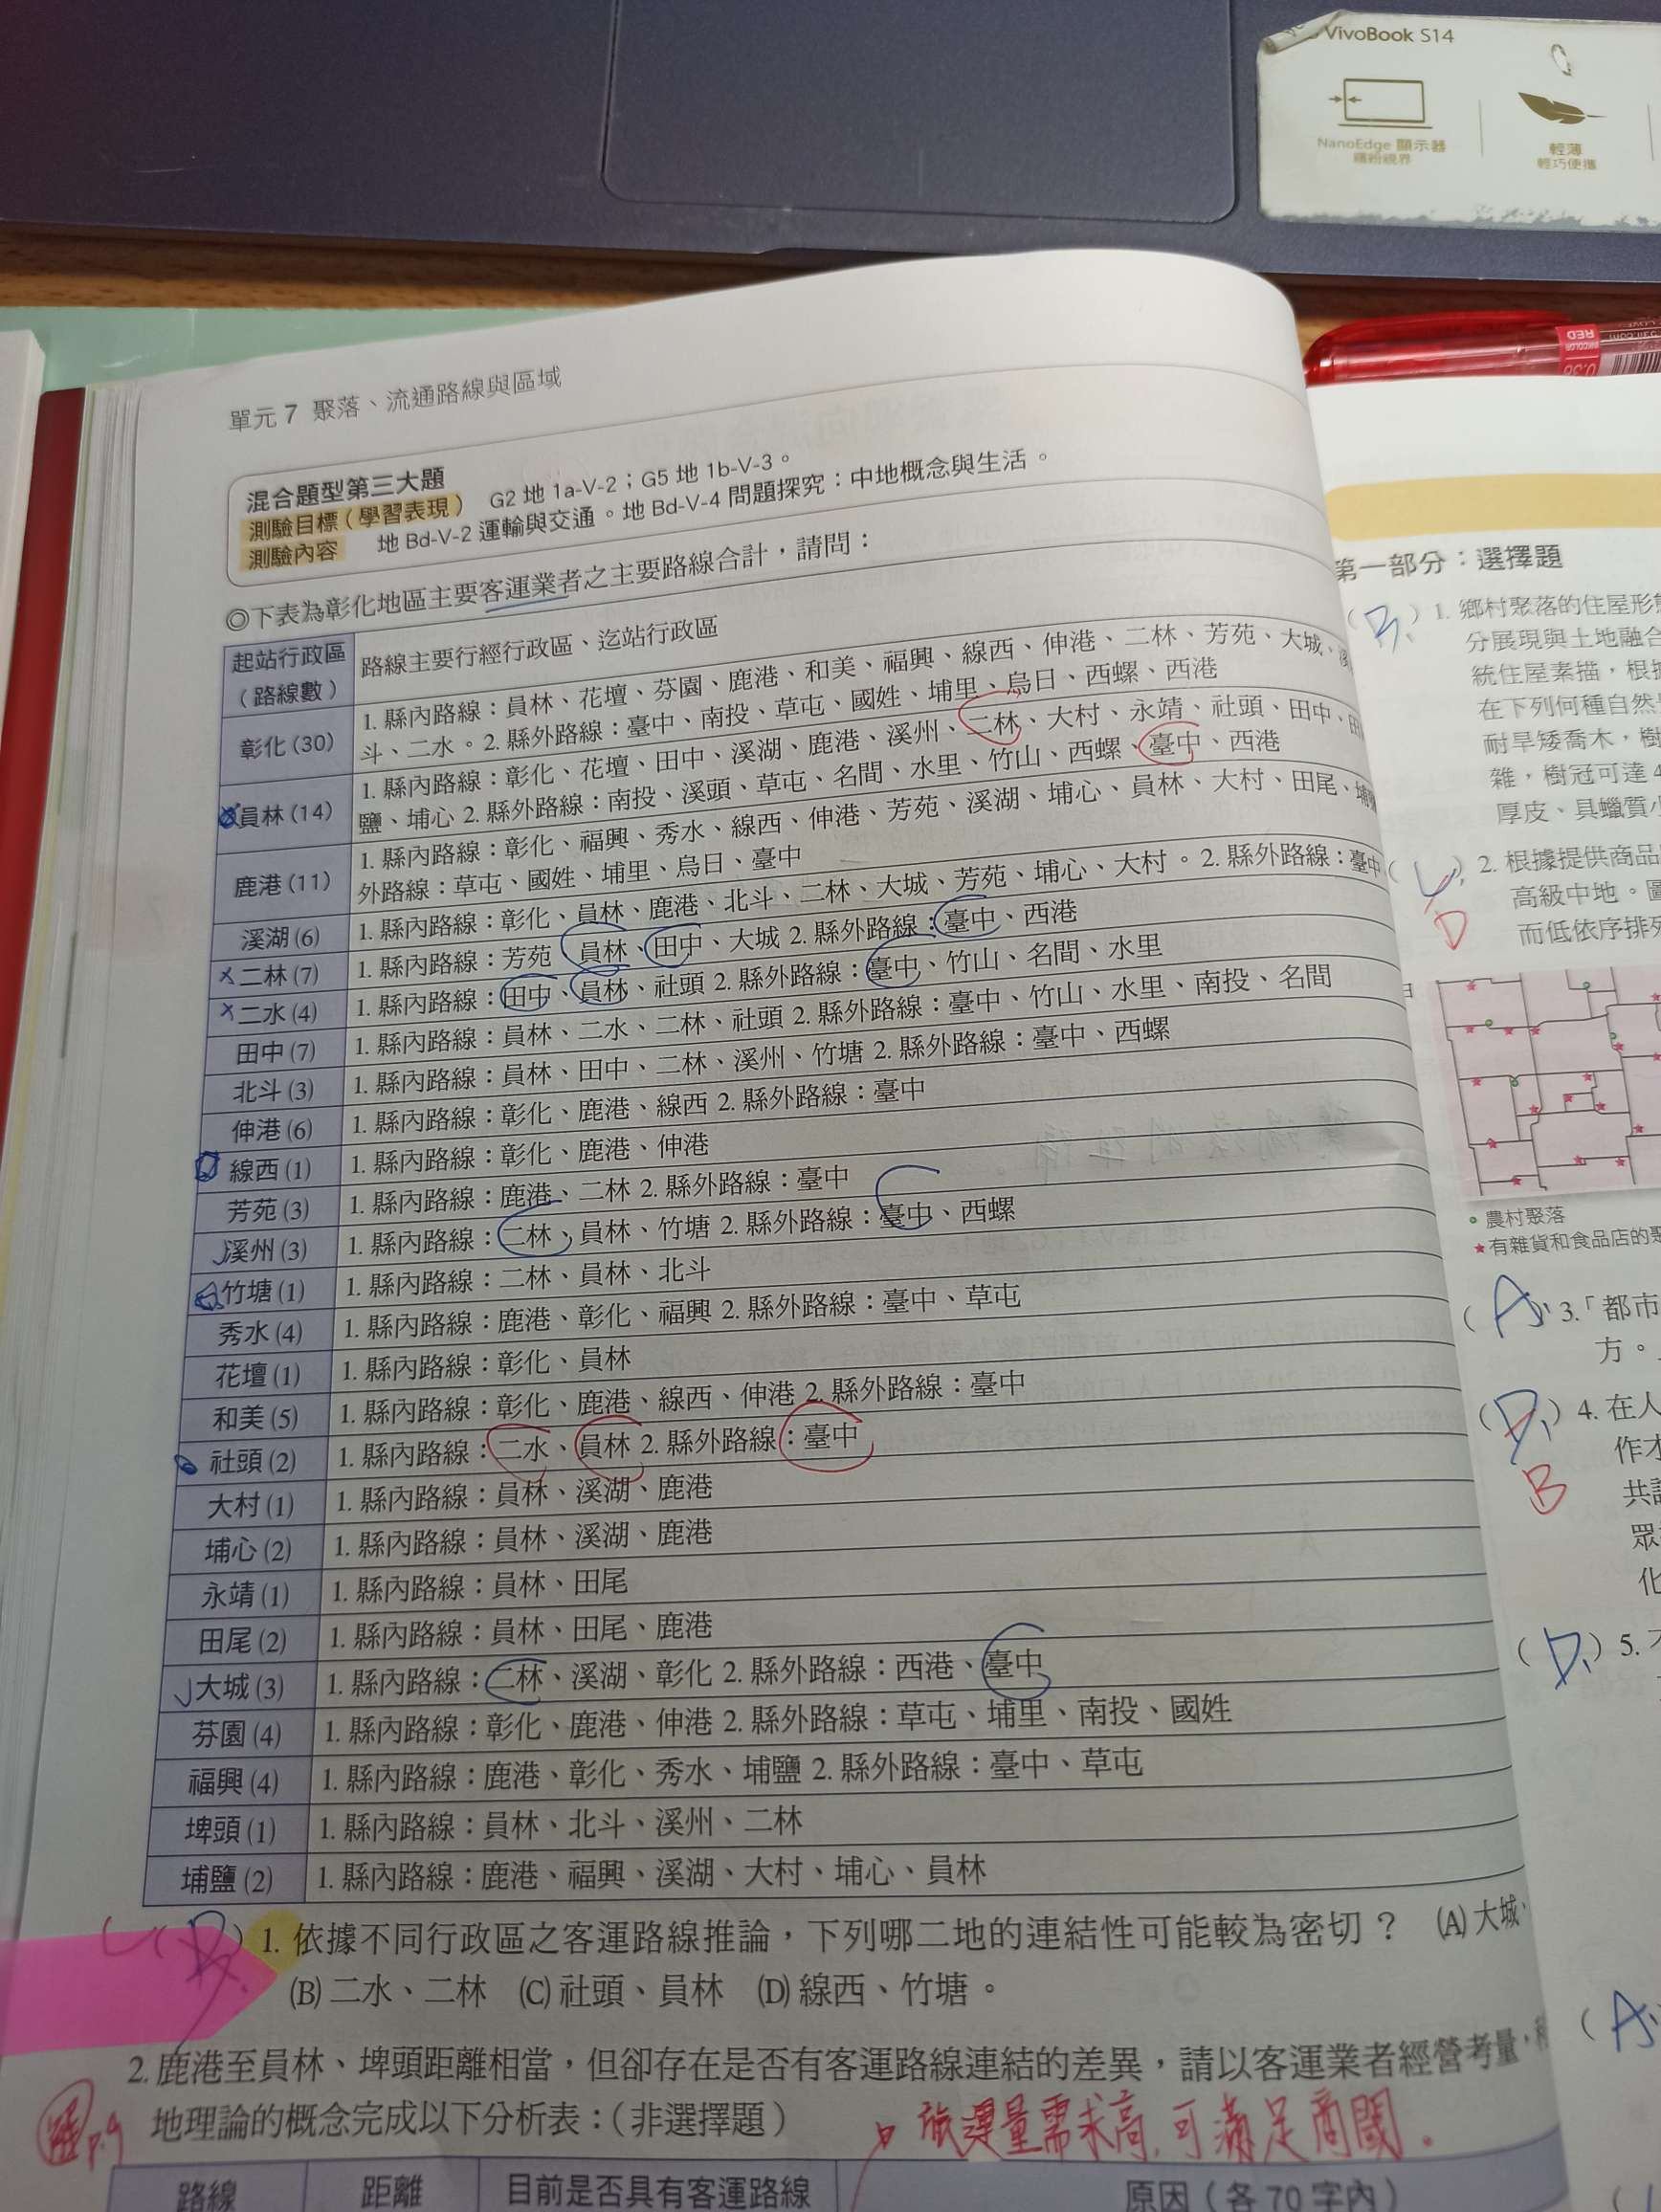 VivoBook S14
NanoEdge 顯示器
繽紛視界
輕薄
輕巧便攜
RED
0.38
單元 7 聚落、流通路線與區域
混合題型第三大題
測驗目標（學習表現） G2 地 1a-V-2；G5 地 1b-V-3。
測驗內容 地 Bd-V-2 運輸與交通。地 Bd-V-4 問題探究：中地概念與生活。
◎下表為彰化地區主要客運業者之主要路線合計，請問：
起站行政區（路線數） 路線主要行經行政區、迄站行政區
彰化(30) 1. 縣內路線：員林、花壇、芬園、鹿港、和美、福興、線西、伸港、二林、芳苑、大城、
斗、二水。2. 縣外路線：臺中、南投、草屯、國姓、埔里、烏日、西螺、西港
員林(14) 1. 縣內路線：彰化、花壇、田中、溪湖、鹿港、溪州、二林、大村、永靖、社頭、田中、
鹽、埔心 2. 縣外路線：南投、溪頭、草屯、名間、水里、竹山、西螺、臺中、西港
鹿港(11) 1. 縣內路線：彰化、福興、秀水、線西、伸港、芳苑、溪湖、埔心、員林、大村、田尾、
外路線：草屯、國姓、埔里、烏日、臺中
溪湖(6) 1. 縣內路線：彰化、員林、鹿港、北斗、二林、大城、芳苑、埔心、大村。2. 縣外路線：臺中
二林(7) 1. 縣內路線：芳苑、員林、田中、大城 2. 縣外路線：臺中、西港
二水(4) 1. 縣內路線：田中、員林、社頭 2. 縣外路線：臺中、竹山、名間、水里
田中(7) 1. 縣內路線：員林、二水、二林、社頭 2. 縣外路線：臺中、竹山、水里、南投、名間
北斗(3) 1. 縣內路線：員林、田中、二林、溪州、竹塘 2. 縣外路線：臺中、西螺
伸港(6) 1. 縣內路線：彰化、鹿港、線西 2. 縣外路線：臺中
線西(1) 1. 縣內路線：彰化、鹿港、伸港
芳苑(3) 1. 縣內路線：鹿港、二林 2. 縣外路線：臺中
溪州(3) 1. 縣內路線：二林、員林、竹塘 2. 縣外路線：臺中、西螺
竹塘(1) 1. 縣內路線：二林、員林、北斗
秀水(4) 1. 縣內路線：鹿港、彰化、福興 2. 縣外路線：臺中、草屯
花壇(1) 1. 縣內路線：彰化、員林
和美(5) 1. 縣內路線：彰化、鹿港、線西、伸港 2. 縣外路線：臺中
社頭(2) 1. 縣內路線：二水、員林 2. 縣外路線：臺中
大村(1) 1. 縣內路線：員林、溪湖、鹿港
埔心(2) 1. 縣內路線：員林、溪湖、鹿港
永靖(1) 1. 縣內路線：員林、田尾
田尾(2) 1. 縣內路線：員林、田尾、鹿港
大城(3) 1. 縣內路線：二林、溪湖、彰化 2. 縣外路線：西港、臺中
芬園(4) 1. 縣內路線：彰化、鹿港、伸港 2. 縣外路線：草屯、埔里、南投、國姓
福興(4) 1. 縣內路線：鹿港、彰化、秀水、埔鹽 2. 縣外路線：臺中、草屯
埤頭(1) 1. 縣內路線：員林、北斗、溪州、二林
埔鹽(2) 1. 縣內路線：鹿港、福興、溪湖、大村、埔心、員林
1. 依據不同行政區之客運路線推論，下列哪二地的連結性可能較為密切？ (A) 大城、
(B) 二水、二林 (C) 社頭、員林 (D) 線西、竹塘。
2. 鹿港至員林、埤頭距離相當，但卻存在是否有客運路線連結的差異，請以客運業者經營考量，
地理論的概念完成以下分析表：（非選擇題）
P.9
旅運量需求高，可滿足商閾。
路線 距離 目前是否具有客運路線 原因（各 70 字內）
第一部分：選擇題
(B) 1. 鄉村聚落的住屋形
分展現與土地融合
統住屋素描，根
在下列何種自然
耐旱矮喬木，樹
雜，樹冠可達 4
厚皮、具蠟質
2. 根據提供商品
D 高級中地。
而低依序排列
農村聚落
★有雜貨和食品店的
(A) 3.「都市
方。
(D) 4. 在人
B 作才
共
眾
化
(D) 5.
(A